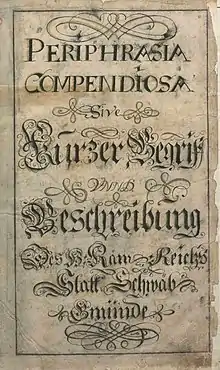 PERIPHRASIA
COMPENDIOSA
Sive
Kurzer Begriff
unnd
Beschreibung
Des H. Röm. Reichs
Statt Schwäb
Gmündt